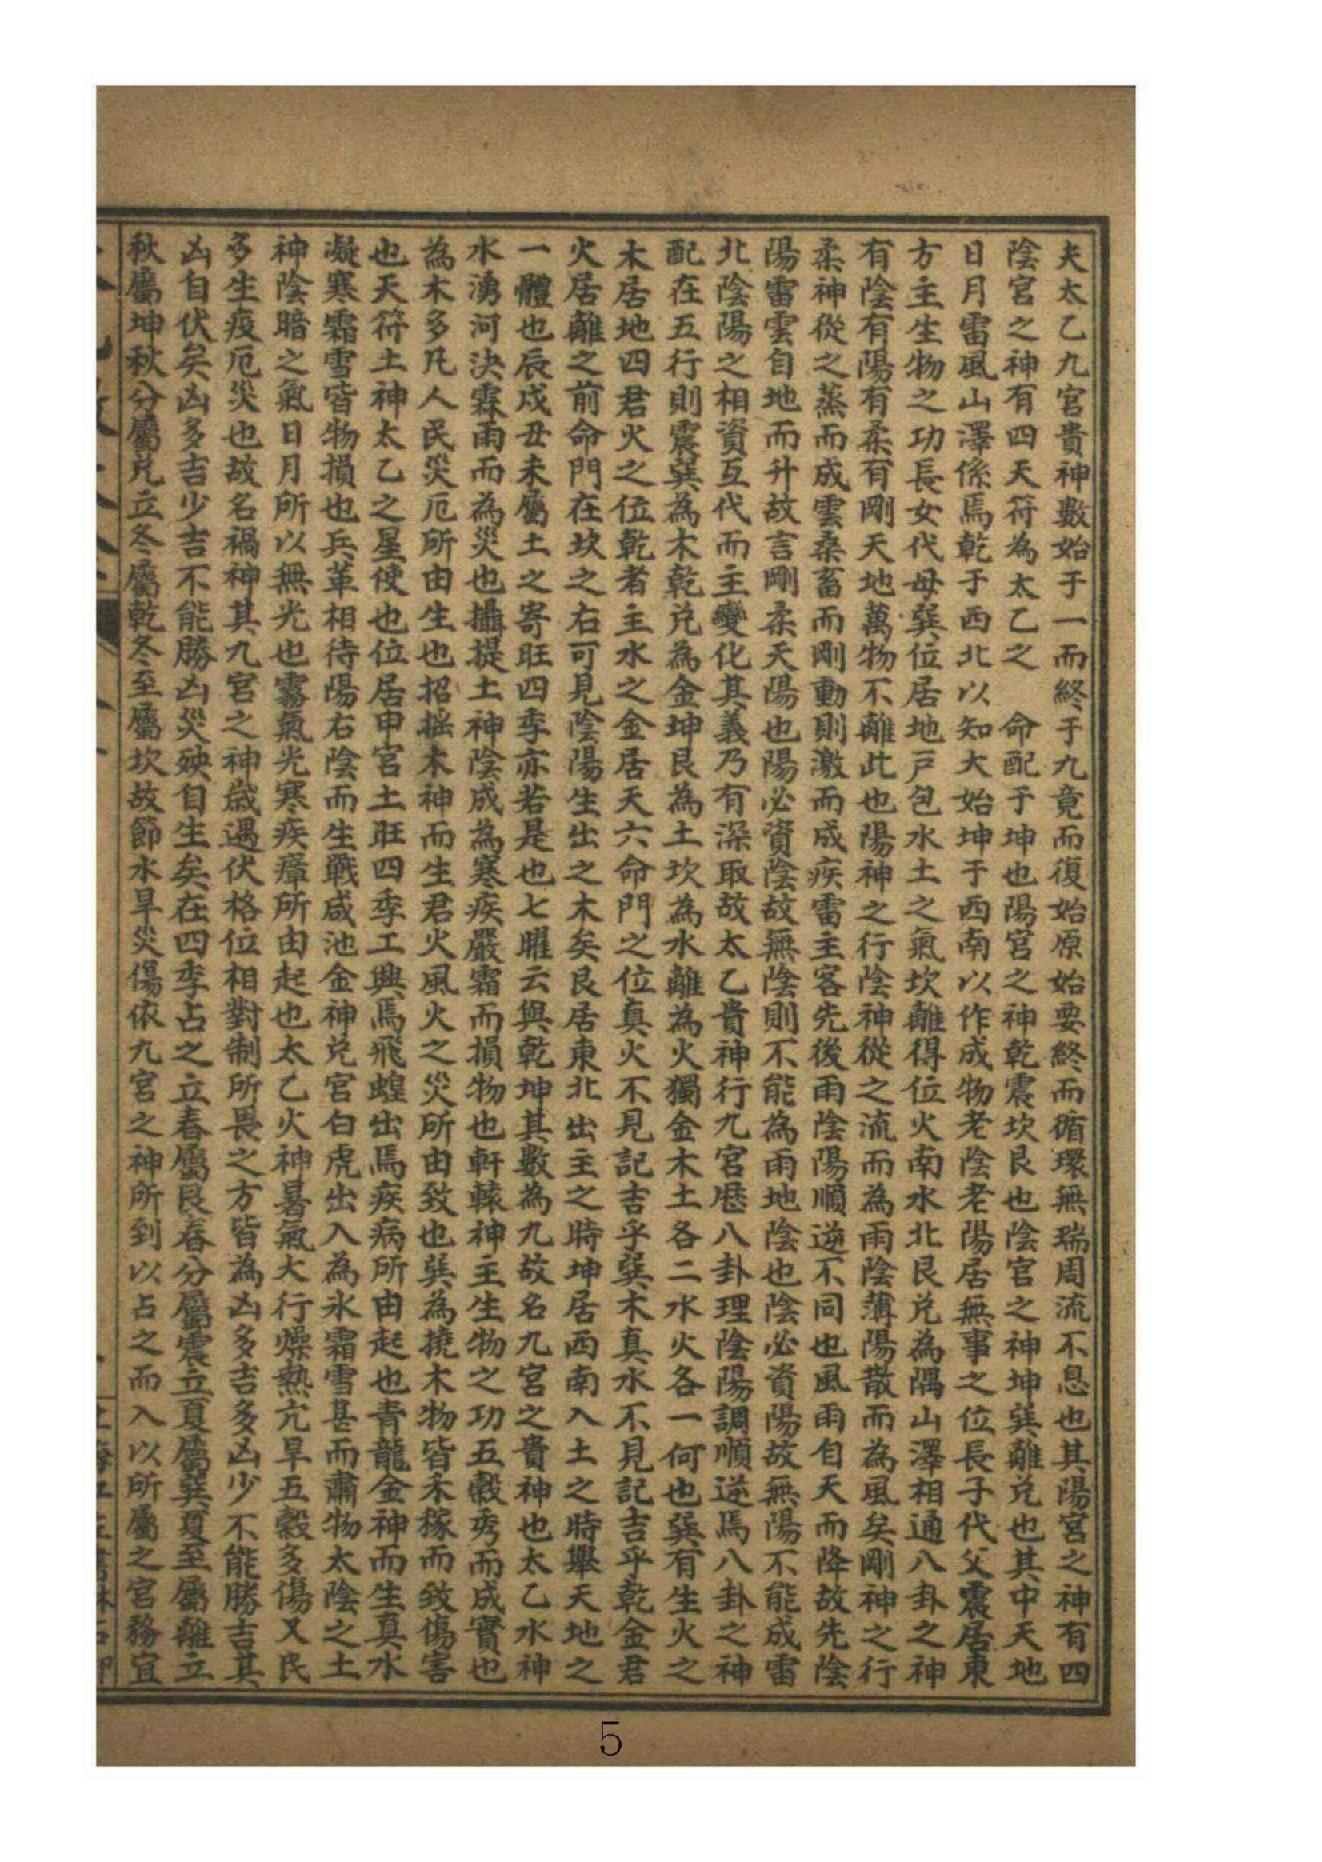 夫太乙九宮貴神數始于一而終于九竟而復始原始要終而循環無瑞周流不息也其陽宮之神有四
陰宮之神有四天符為太乙之　命配于坤也陽宮之神乾震坎艮也陰宮之神坤巽離兌也其中天地
日月雷風山澤係焉乾于西北以知大始坤于西南以作成物老陰老陽居無事之位長子代父震居東
方主生物之功長女代母巽位居地戸包水土之氣坎離得位火南水北艮兌為隅山澤相通八卦之神
有陰有陽有柔有剛天地萬物不離此也陽神之行陰神從之流而為雨陰薄陽散而為風矣剛神之行
柔神從之蒸而成雲柔畜而剛動則激而成疾雷主客先後雨陰陽順逆不同也風雨自天而降故先陰
陽雷雲自地而升故言剛柔天陽也陽必資陰故無陰則不能為雨地陰也陰必資陽故無陽不能成雷
北陰陽之相資互代而主變化其義乃有深取故太乙貴神行九宮歷八卦理陰陽調順逆焉八卦之神
配在五行則震巽為木乾兌為金坤艮為土坎為水離為火獨金木土各二水火各一何也巽有生火之
木居地四君火之位乾者主水之金居天六命門之位真火不見記吉乎巽木真水不見記吉乎乾金君
火居離之前命門在坎之右可見陰陽生出之木矣艮居東北出主之時坤居西南入土之時舉天地之
一體也辰戌丑未屬土之寄旺四季亦若是也七曜云與乾坤其數為九故名九宮之貴神也太乙水神
水湧河決霖雨而為災也攝提土神陰成為寒疾嚴霜而損物也軒轅神主生物之功五穀秀而成實也
為木多凡人民災厄所由生也招搖木神而生君火風火之災所由致也巽為撓木物皆禾稼而致傷害
也天符土神太乙之星使也位居中宮土旺四季工興焉飛蝗出焉疾病所由起也青龍金神而生真水
凝寒霜雪皆物損也兵革相待陽右陰而生戰咸池金神兌宮白虎出入為氷霜雪甚而肅物太陰之土
神陰暗之氣日月所以無光也霧氣光寒疾瘴所由起也太乙火神暑氣大行燥熱亢旱五穀多傷又民
多生疫厄災也故名禍神其九宮之神歲遇伏格位相對制所畏之方皆為凶多吉多凶少不能勝吉其
凶自伏矣凶多吉少吉不能勝凶災殃自生矣在四季占之立春屬艮春分屬震立夏屬巽夏至屬離立
秋屬坤秋分屬兌立冬屬乾冬至屬坎故節水旱災傷依九宮之神所到以占之而入以所屬之宮務宜
5